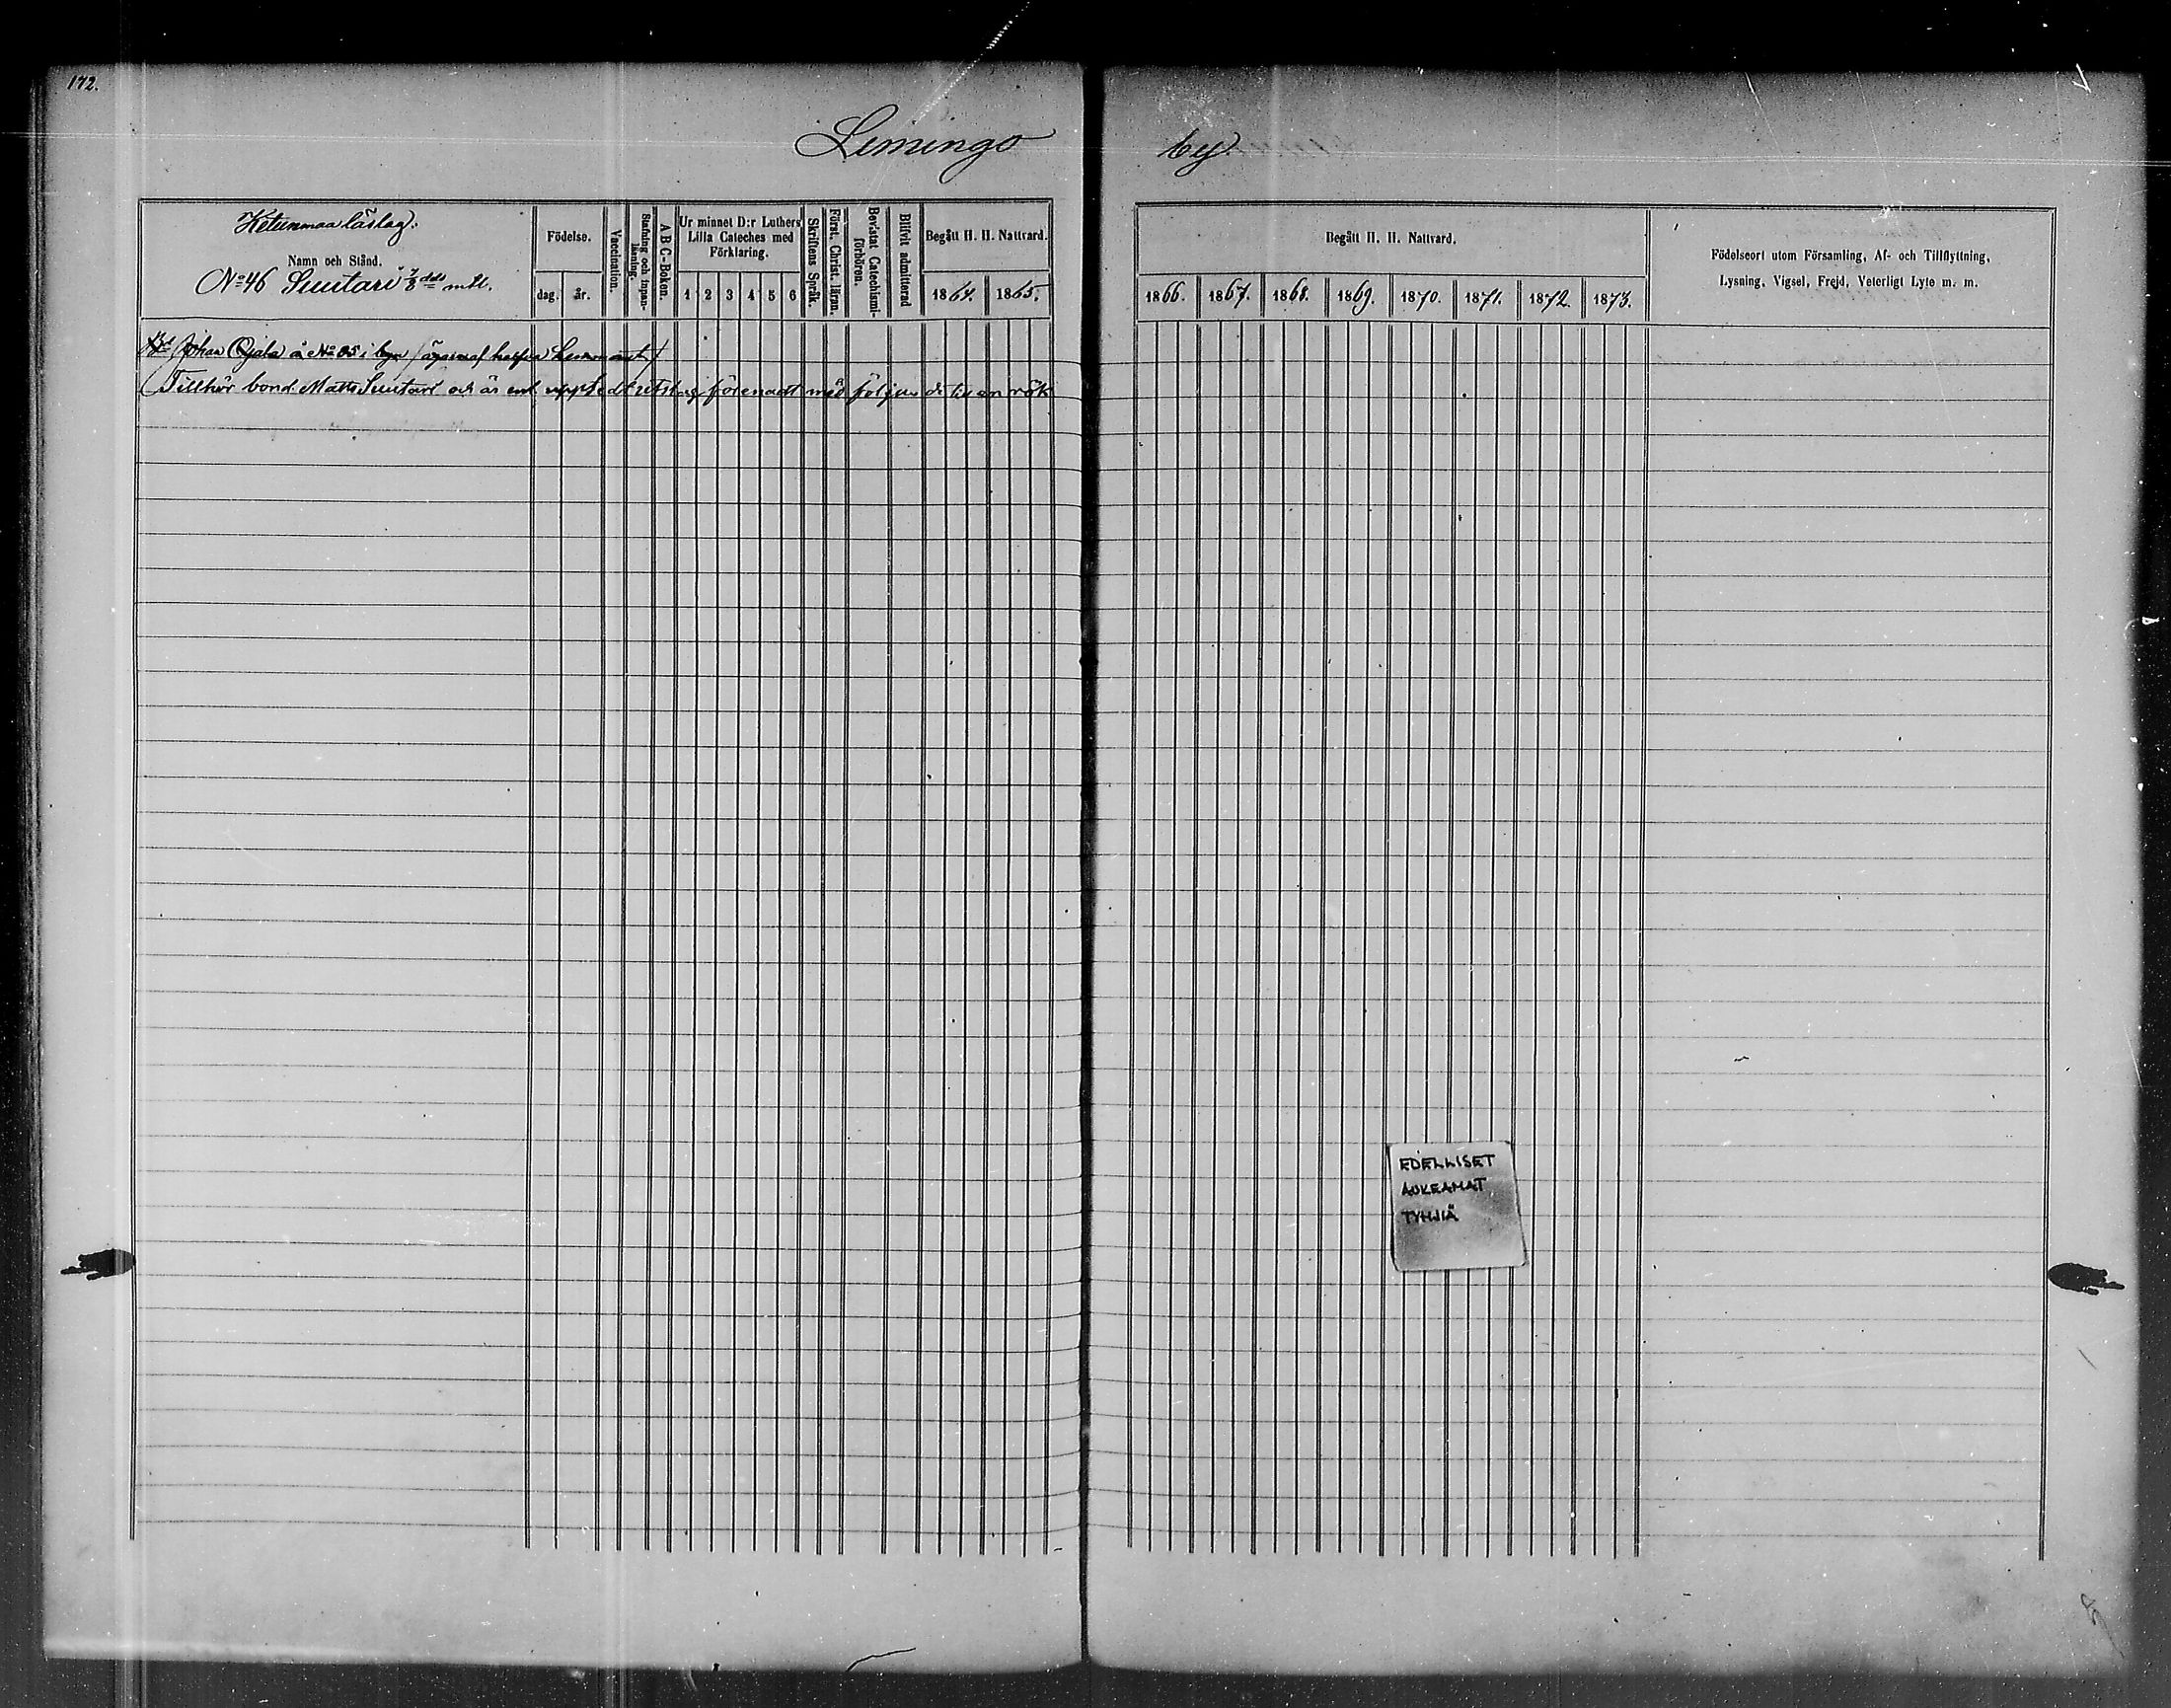 172.
Limingo by
Ketunmaa läslag:
Namn och Stånd.
No 46 Suutari 7/8 dels mtl.
Födelse.
dag. år.
Vaccination.
Stafning och innan-läsning.
A B C-Boken.
Ur minnet D:r Luthers
Lilla Cateches med
Förklaring.
1 2 3 4 5 6
Skriftens Språk.
Förät. Christ. läran.
Bevistat Catechismi-förhören.
Blifvit admitterad
Begått H. H. Nattvard.
1864. 1865.
Begått H. H. Nattvard.
1866. 1867. 1868. 1869. 1870. 1871. 1872. 1873.
Födelseort utom Församling, Af- och Tillflyttning,
Lysning, Vigsel, Frejd, Veterligt Lyte m. m.
Johan Ojala å No 85 i byn / äger halfva hemmanet /
Tillhör bond. Matts Suutari och är enl. förenadt med följande till en rök
EDELLISET
AUKEAMAT
TYHJIÄ